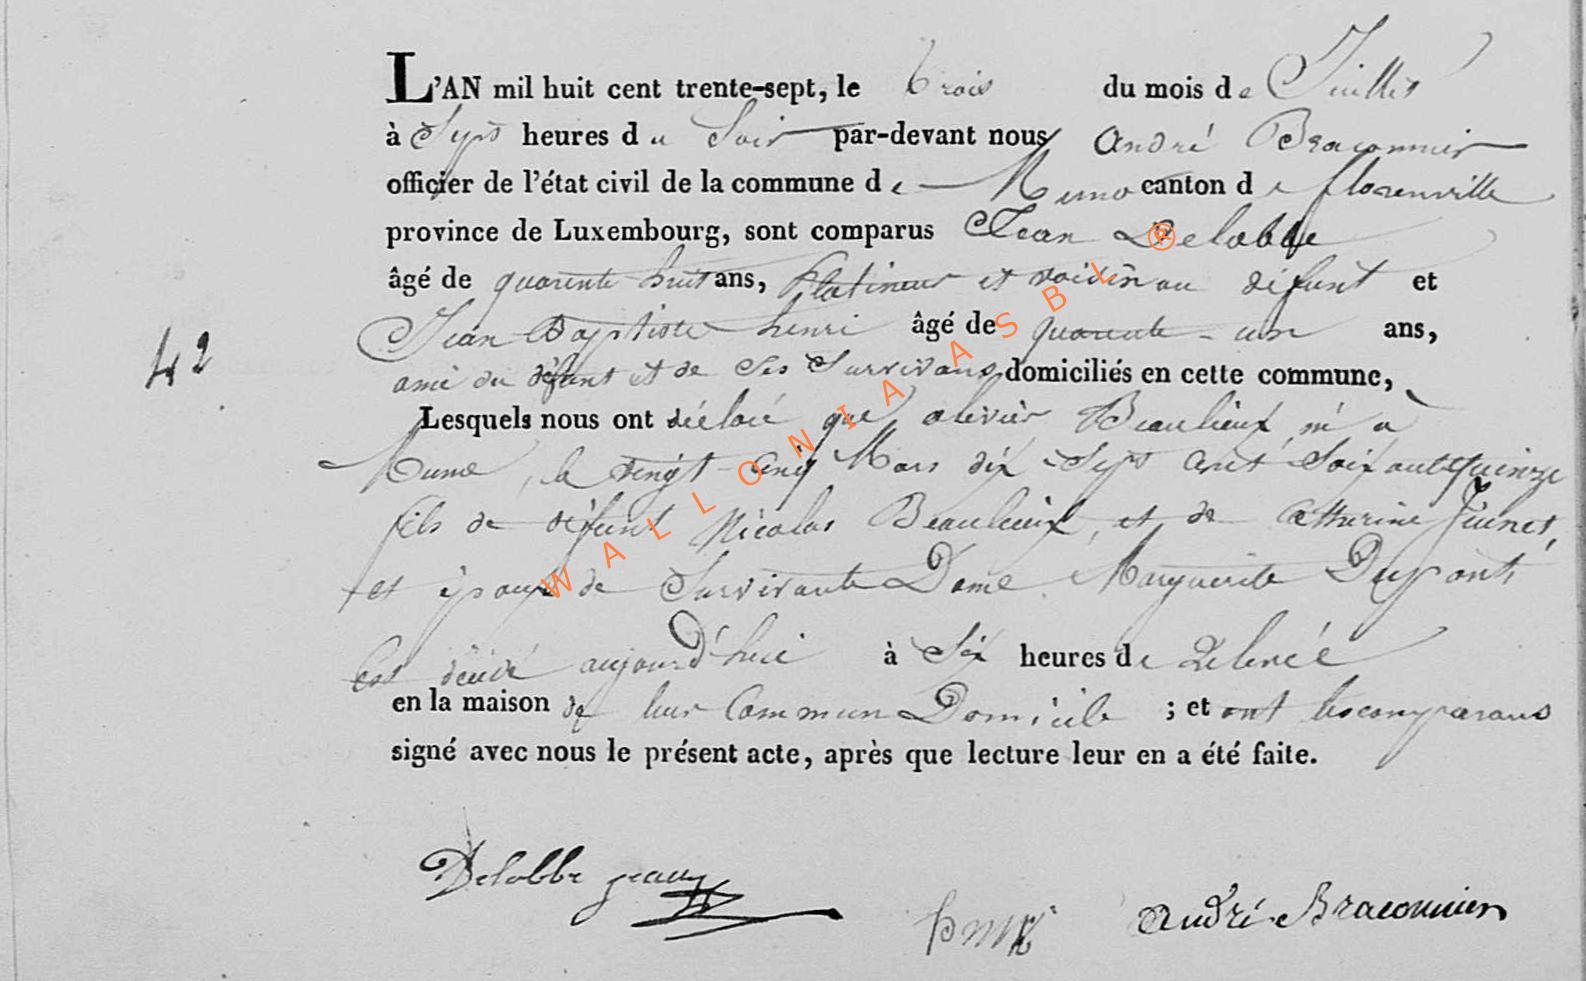 L'AN mil huit cent trente-sept, le trois du mois de Juillet
à Sept heures du Soir par-devant nous André Braconnier
officier de l'état civil de la commune de Muno canton de florenville
province de Luxembourg, sont comparus Jean Delobbe
âgé de quarente huit ans, platineur et voisin au défunt et
Jean Baptiste henri âgé de quarente-un ans,
42
ami du défunt et de Ses Survivans domiciliés en cette commune,
Lesquels nous ont déclaré que olivier Beaulieux né a
Muno, le vingt-Cinq Mars dix-Sept Cent Soixantequinze
fils de défunt Nicolas Beaulieux, et de Catherine
et époux de Survivante Dame Marguerite Dupont,
Est décédé aujourd'hui à Six heures de relevée
en la maison de leur Commun Domicile ; et ont les comparans
signé avec nous le présent acte, après que lecture leur en a été faite.
Delobbe jean
André Braconnier
WALLONIA ASBL ®